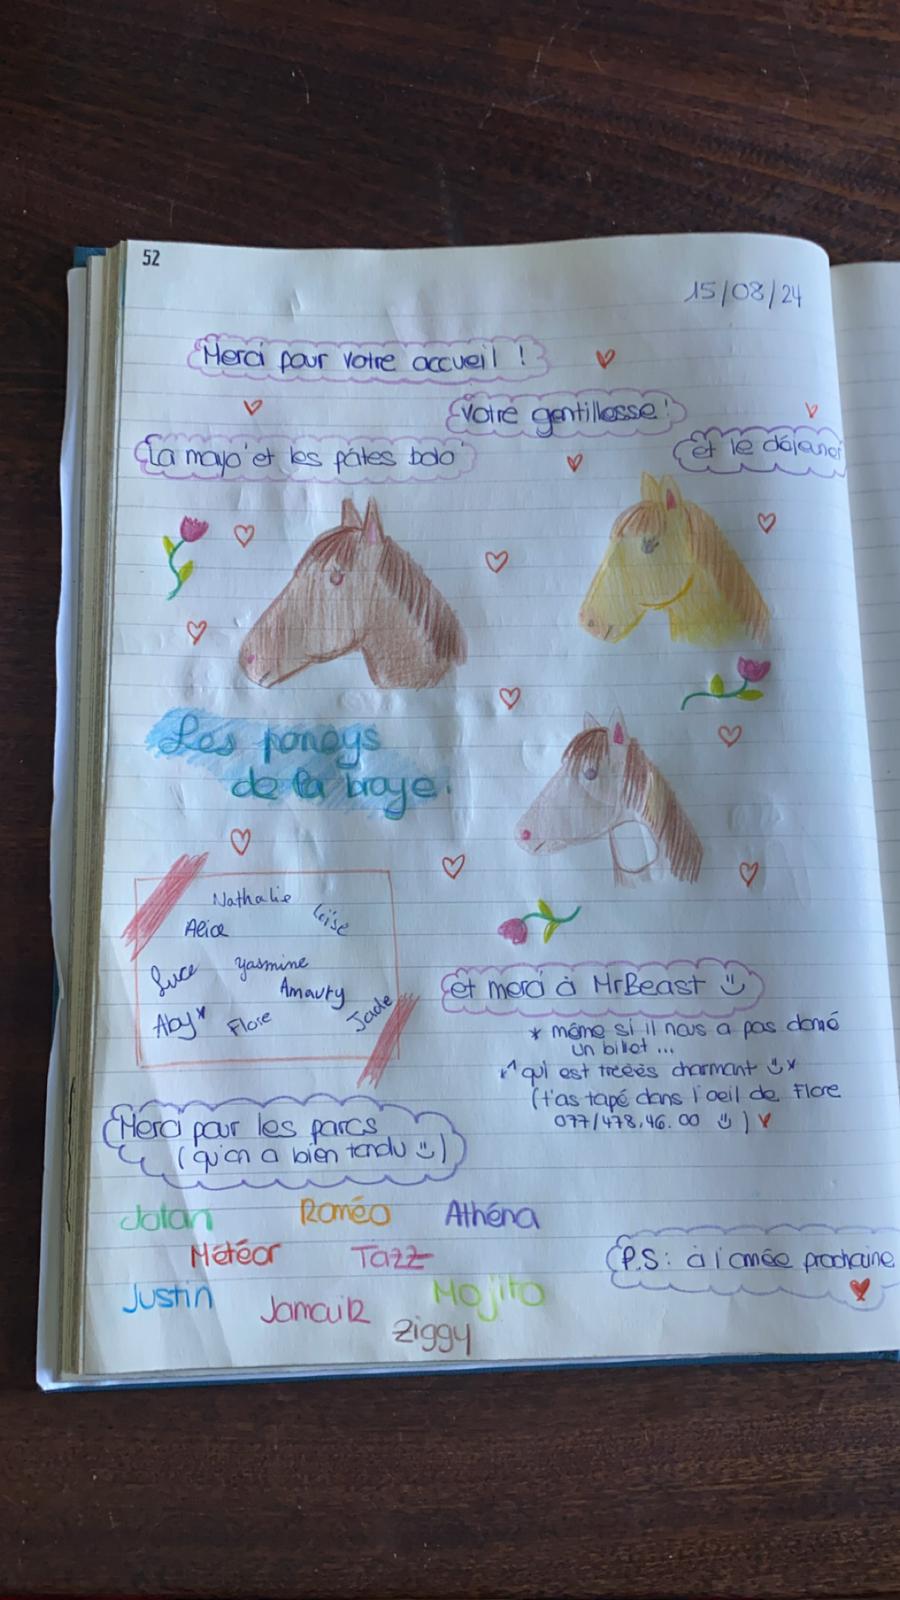 52
15/08/24
Merci pour votre accueil !
votre gentillesse !
La mayo et les pâtes bolo
et le déjeuner
Les poneys
de la broye.
Nathalie
Loïse
Alice
Luce
Yasmine
Amaury
Aby*
Flore
Jade
et merci à MrBeast
* même si il nous a pas donné
un billet ...
qui est trèèès charmant
(t'as tapé dans l'oeil de Flore
077/478.46.00 )
Merci pour les parcs
(qu'on a bien tendu )
Jolan Roméo Athéna
Météor Tazz
Justin Jamaik Mojito
Ziggy
P.S : à l'année prochaine